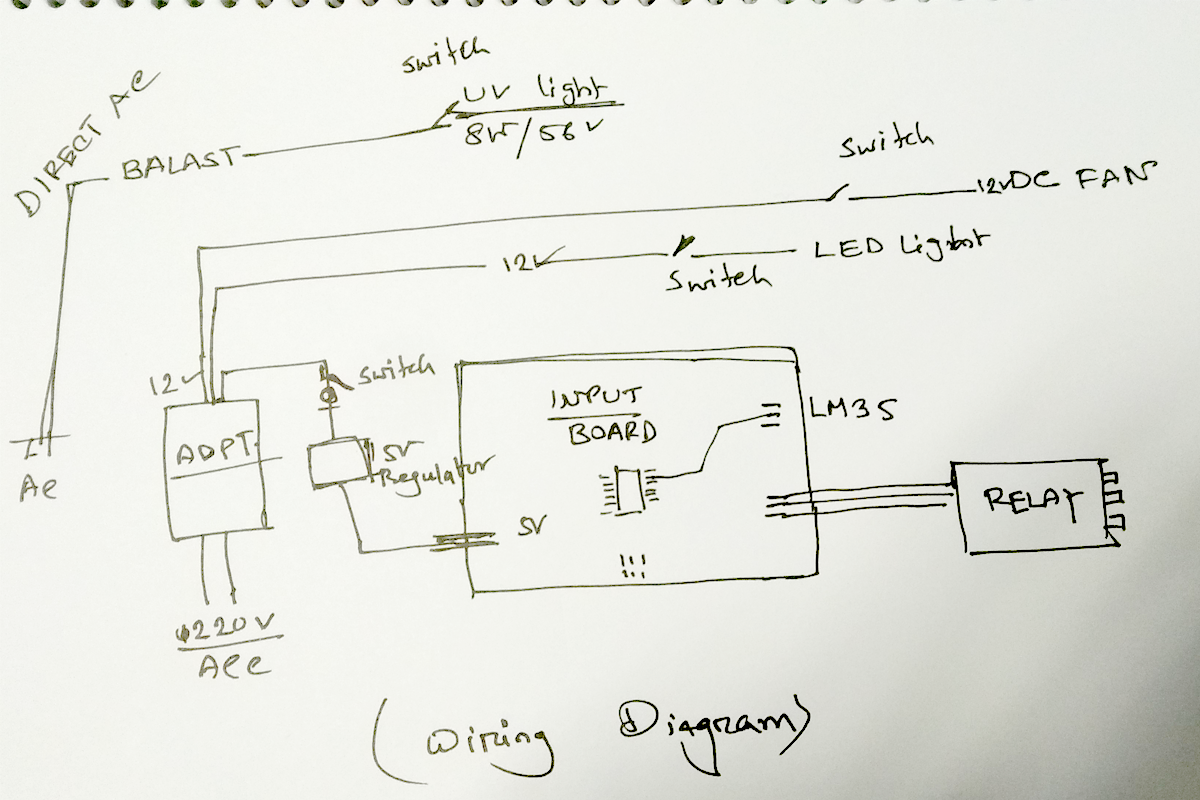 switch
UV light
8W/56V
DIRECT AC
BALAST
switch
12VDC FAN
12V
LED Light
Switch
12V
switch
ADPT
5V
Regulator
INPUT
BOARD
LM35
5V
RELAY
AC
220V
(Wiring Diagram)